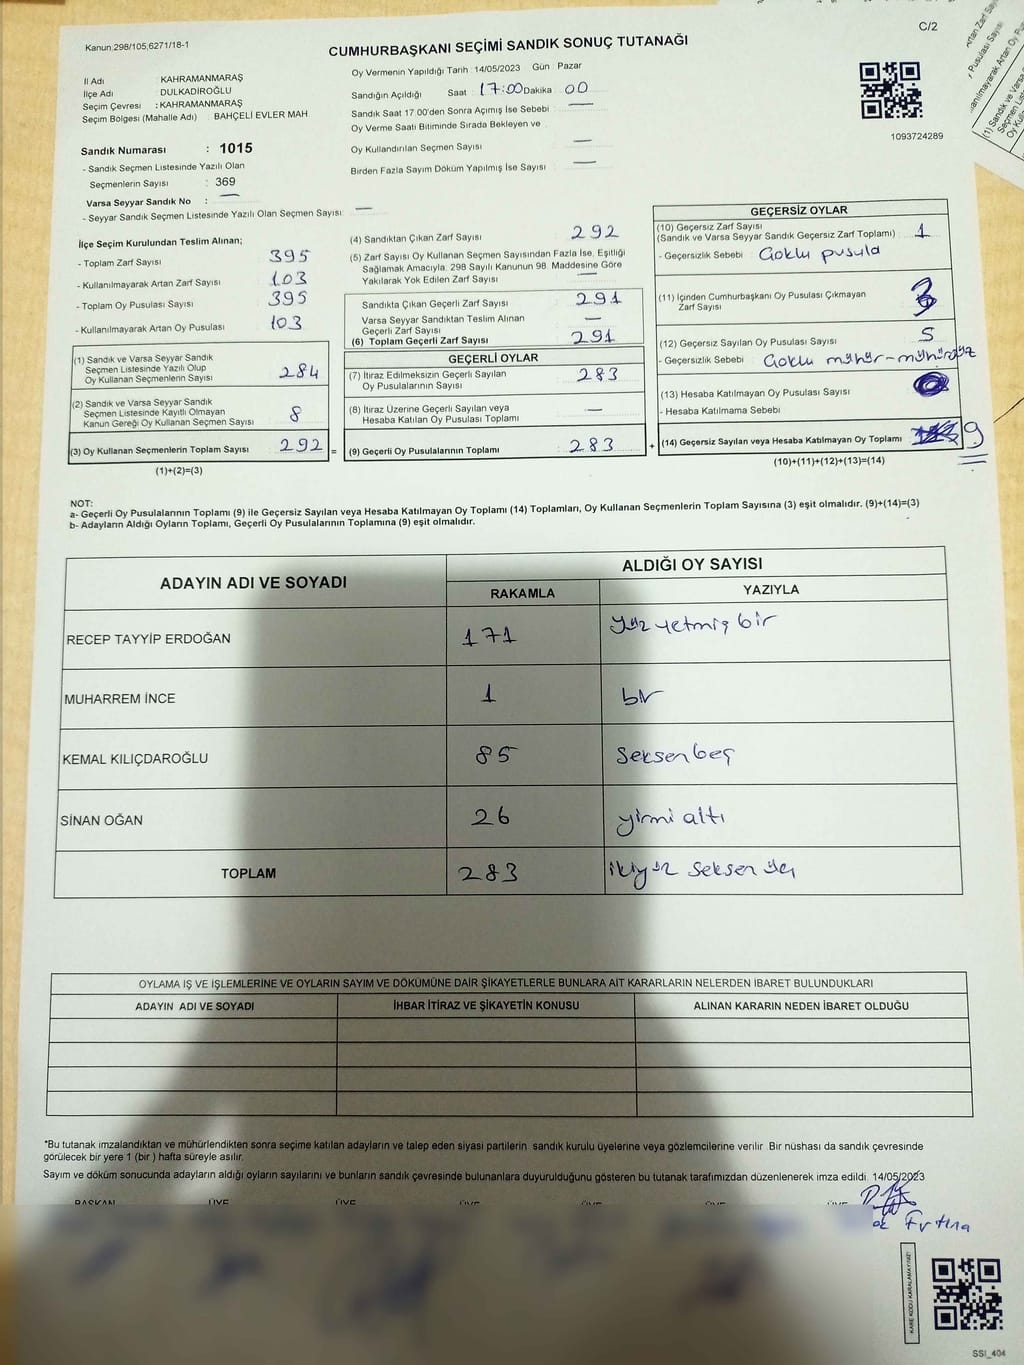 Kanun:298/105,6271/18-1
C/2
CUMHURBAŞKANI SEÇİMİ SANDIK SONUÇ TUTANAĞI
İl Adı : KAHRAMANMARAŞ
İlçe Adı : DULKADİROĞLU
Seçim Çevresi : KAHRAMANMARAŞ
Seçim Bölgesi (Mahalle Adı) : BAHÇELİ EVLER MAH
Sandık Numarası : 1015
- Sandık Seçmen Listesinde Yazılı Olan
Seçmenlerin Sayısı : 369
Varsa Seyyar Sandık No : —
- Seyyar Sandık Seçmen Listesinde Yazılı Olan Seçmen Sayısı: —
Oy Vermenin Yapıldığı Tarih : 14/05/2023 Gün : Pazar
Sandığın Açıldığı Saat : 17:00 Dakika : 00
Sandık Saat 17.00'den Sonra Açımış İse Sebebi : —
Oy Verme Saati Bitiminde Sırada Bekleyen ve
Oy Kullandırılan Seçmen Sayısı : —
Birden Fazla Sayım Döküm Yapılmış İse Sayısı : —
1093724289
İlçe Seçim Kurulundan Teslim Alınan;
- Toplam Zarf Sayısı : 395
- Kullanılmayarak Artan Zarf Sayısı : 103
- Toplam Oy Pusulası Sayısı : 395
- Kullanılmayarak Artan Oy Pusulası : 103
(1) Sandık ve Varsa Seyyar Sandık
Seçmen Listesinde Yazılı Olup
Oy Kullanan Seçmenlerin Sayısı : 284
(2) Sandık ve Varsa Seyyar Sandık
Seçmen Listesinde Kayıtlı Olmayan
Kanun Gereği Oy Kullanan Seçmen Sayısı : 8
(3) Oy Kullanan Seçmenlerin Toplam Sayısı : 292 =
(1)+(2)=(3)
(4) Sandıktan Çıkan Zarf Sayısı : 292
(5) Zarf Sayısı Oy Kullanan Seçmen Sayısından Fazla İse, Eşitliği
Sağlamak Amacıyla, 298 Sayılı Kanunun 98. Maddesine Göre
Yakılarak Yok Edilen Zarf Sayısı : —
Sandıkta Çıkan Geçerli Zarf Sayısı : 291
Varsa Seyyar Sandıktan Teslim Alınan
Geçerli Zarf Sayısı : —
(6) Toplam Geçerli Zarf Sayısı : 291
GEÇERLİ OYLAR
(7) İtiraz Edilmeksizin Geçerli Sayılan
Oy Pusulalarının Sayısı : 283
(8) İtiraz Üzerine Geçerli Sayılan veya
Hesaba Katılan Oy Pusulası Toplamı : —
(9) Geçerli Oy Pusulalarının Toplamı : 283 +
GEÇERSİZ OYLAR
(10) Geçersiz Zarf Sayısı
(Sandık ve Varsa Seyyar Sandık Geçersiz Zarf Toplamı) : 1
- Geçersizlik Sebebi : Çoklu pusula
(11) İçinden Cumhurbaşkanı Oy Pusulası Çıkmayan
Zarf Sayısı : 3
(12) Geçersiz Sayılan Oy Pusulası Sayısı : 5
- Geçersizlik Sebebi : Çoklu mühür-mühürsüz
(13) Hesaba Katılmayan Oy Pusulası Sayısı
- Hesaba Katılmama Sebebi
(14) Geçersiz Sayılan veya Hesaba Katılmayan Oy Toplamı : 9
(10)+(11)+(12)+(13)=(14)
NOT:
a- Geçerli Oy Pusulalarının Toplamı (9) ile Geçersiz Sayılan veya Hesaba Katılmayan Oy Toplamı (14) Toplamları, Oy Kullanan Seçmenlerin Toplam Sayısına (3) eşit olmalıdır. (9)+(14)=(3)
b- Adayların Aldığı Oyların Toplamı, Geçerli Oy Pusulalarının Toplamına (9) eşit olmalıdır.
ADAYIN ADI VE SOYADI
ALDIĞI OY SAYISI
RAKAMLA YAZIYLA
RECEP TAYYİP ERDOĞAN 171 yüz yetmiş bir
MUHARREM İNCE 1 bir
KEMAL KILIÇDAROĞLU 85 seksen beş
SİNAN OĞAN 26 yirmi altı
TOPLAM 283 ikiyüz seksen üç
OYLAMA İŞ VE İŞLEMLERİNE VE OYLARIN SAYIM VE DÖKÜMÜNE DAİR ŞİKAYETLERLE BUNLARA AİT KARARLARIN NELERDEN İBARET BULUNDUKLARI
ADAYIN ADI VE SOYADI İHBAR İTİRAZ VE ŞİKAYETİN KONUSU ALINAN KARARIN NEDEN İBARET OLDUĞU
*Bu tutanak imzalandıktan ve mühürlendikten sonra seçime katılan adayların ve talep eden siyasi partilerin sandık kurulu üyelerine veya gözlemcilerine verilir. Bir nüshası da sandık çevresinde
görülecek bir yere 1 (bir ) hafta süreyle asılır.
Sayım ve döküm sonucunda adayların aldığı oyların sayılarını ve bunların sandık çevresinde bulunanlara duyurulduğunu gösteren bu tutanak tarafımızdan düzenlenerek imza edildi. 14/05/2023
BAŞKAN ÜYE ÜYE ÜYE ÜYE ÜYE ÜYE
Fırtına
KARE KODU KARALAMAYINIZ!
SSI_404